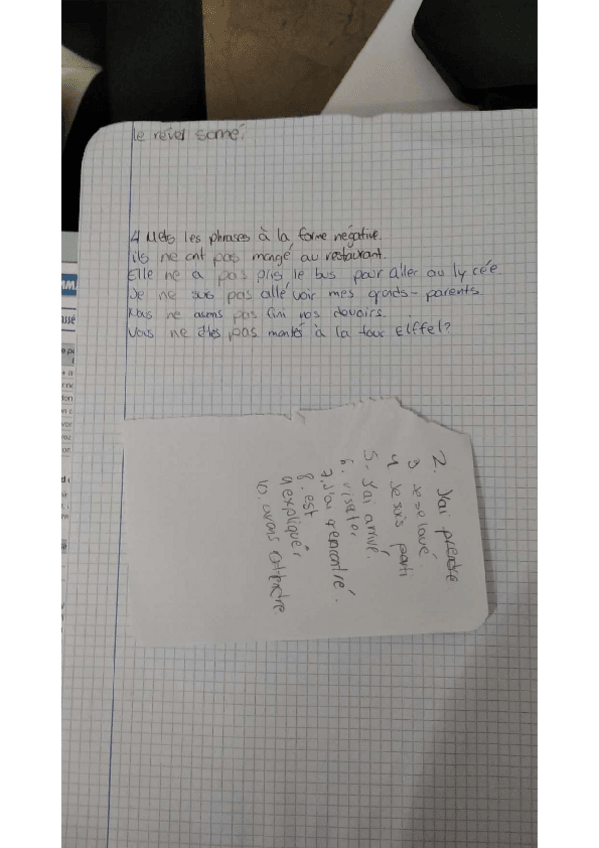 le réveil sonné.
4 Mets les phrases à la forme négative.
ils ne ont pas mangé au restaurant.
Elle ne a pas pris le bus pour aller au lycée.
Je ne suis pas allé voir mes grands-parents.
Nous ne avons pas fini nos devoirs.
Vous ne êtes pas montés à la tour Eiffel?
2. J'ai prendre
3 Je se lavé.
4 Je suis parti
5. J'ai arrivé.
6. visiter
7. J'ai rencontré.
8. est
9 expliquér
10. avons attendre